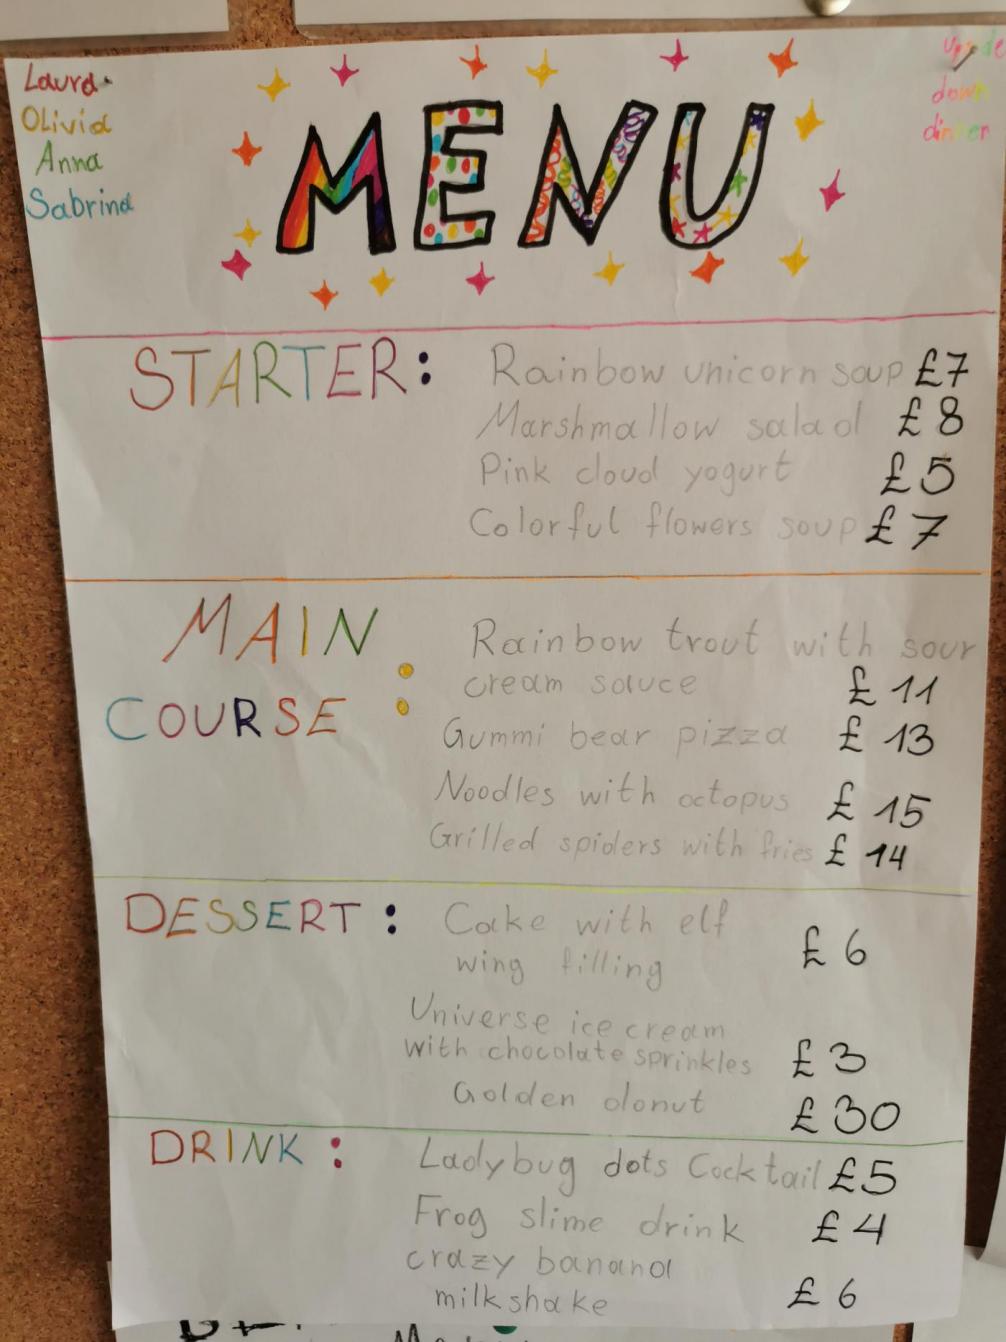 Laura
Olivia
Anna
Sabrina
upside
down
dinner
MENU
STARTER:
Rainbow unicorn soup £7
Marshmallow salad £8
Pink cloud yogurt £5
Colorful flowers soup £7
MAIN
COURSE:
Rainbow trout with sour
cream sauce £11
Gummi bear pizza £13
Noodles with octopus £15
Grilled spiders with fries £14
DESSERT:
Cake with elf
wing filling £6
Universe ice cream
with chocolate sprinkles £3
Golden donut £30
DRINK:
Ladybug dots Cocktail £5
Frog slime drink £4
crazy banana
milkshake £6